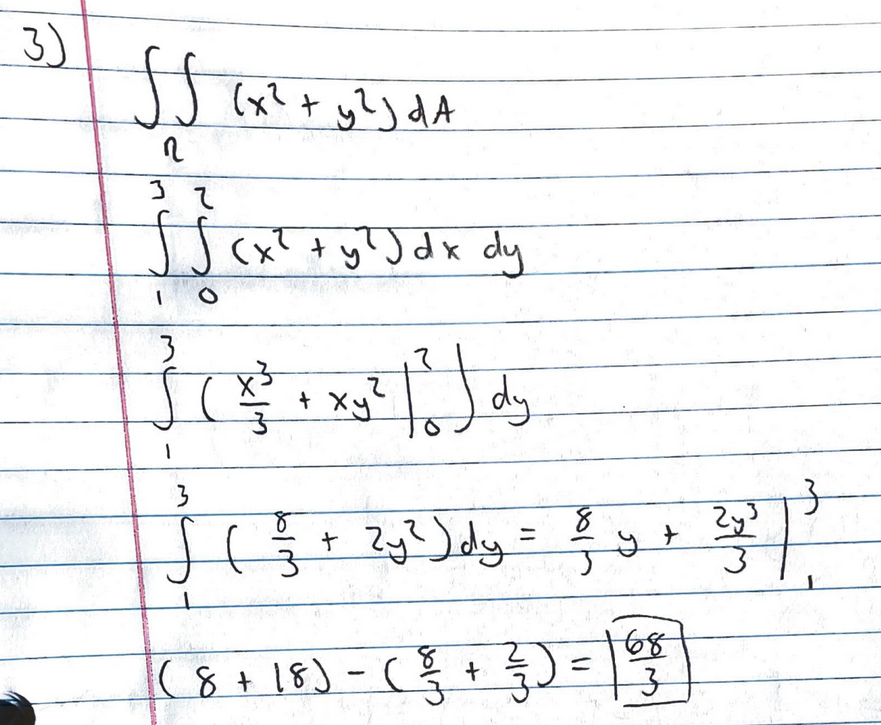 3) ∬_R (x² + y²) dA
∫₁³ ∫₀² (x² + y²) dx dy
∫₁³ ( x³/3 + xy² |₀² ) dy
∫₁³ ( 8/3 + 2y² ) dy = 8/3 y + 2y³/3 |₁³
(8 + 18) - ( 8/3 + 2/3 ) = 68/3